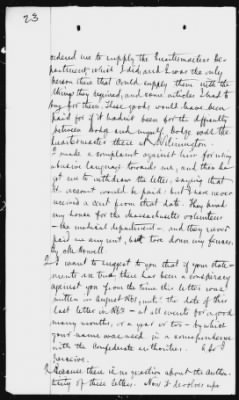 23
ordered me to supply the Quartermasters De-
partment, which I did, and I was the only
person there that could supply them with the
things they required, and some articles I had to
buy for them. These goods would have been
paid for if it hadn't been for the difficulty
between Dodge and myself, Dodge said the
quartermaster there at Wilmington.
I made a complaint against him for using
abusive language towards me, and they
got me to withdraw the letter, saying that
the account would be paid: but I have never
received a cent from that date. They hired
my house for the Massachusetts volunteers
- the medical department -, and they never
paid me any rent, but tore down my fences,
by
2. I want to suggest to you that if your state-
ments are true there has been a conspiracy
against you from the time this letter was
written in August 1861, until the date of this
last letter in 1863 - at all events for a good
many months, or a year or two - by which
your name was used in a correspondence
with the Confederate authorities.
perceive.
Because there is no question about the authen-
ticity of these letters. Now it devolves upon